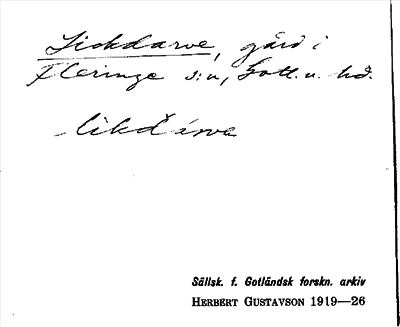 Lickdarve, gård i
Fleringe s:n, Gotl. n. hd.
likdárve
Sällsk. f. Gotländsk forskn. arkiv
HERBERT GUSTAVSON 1919—26